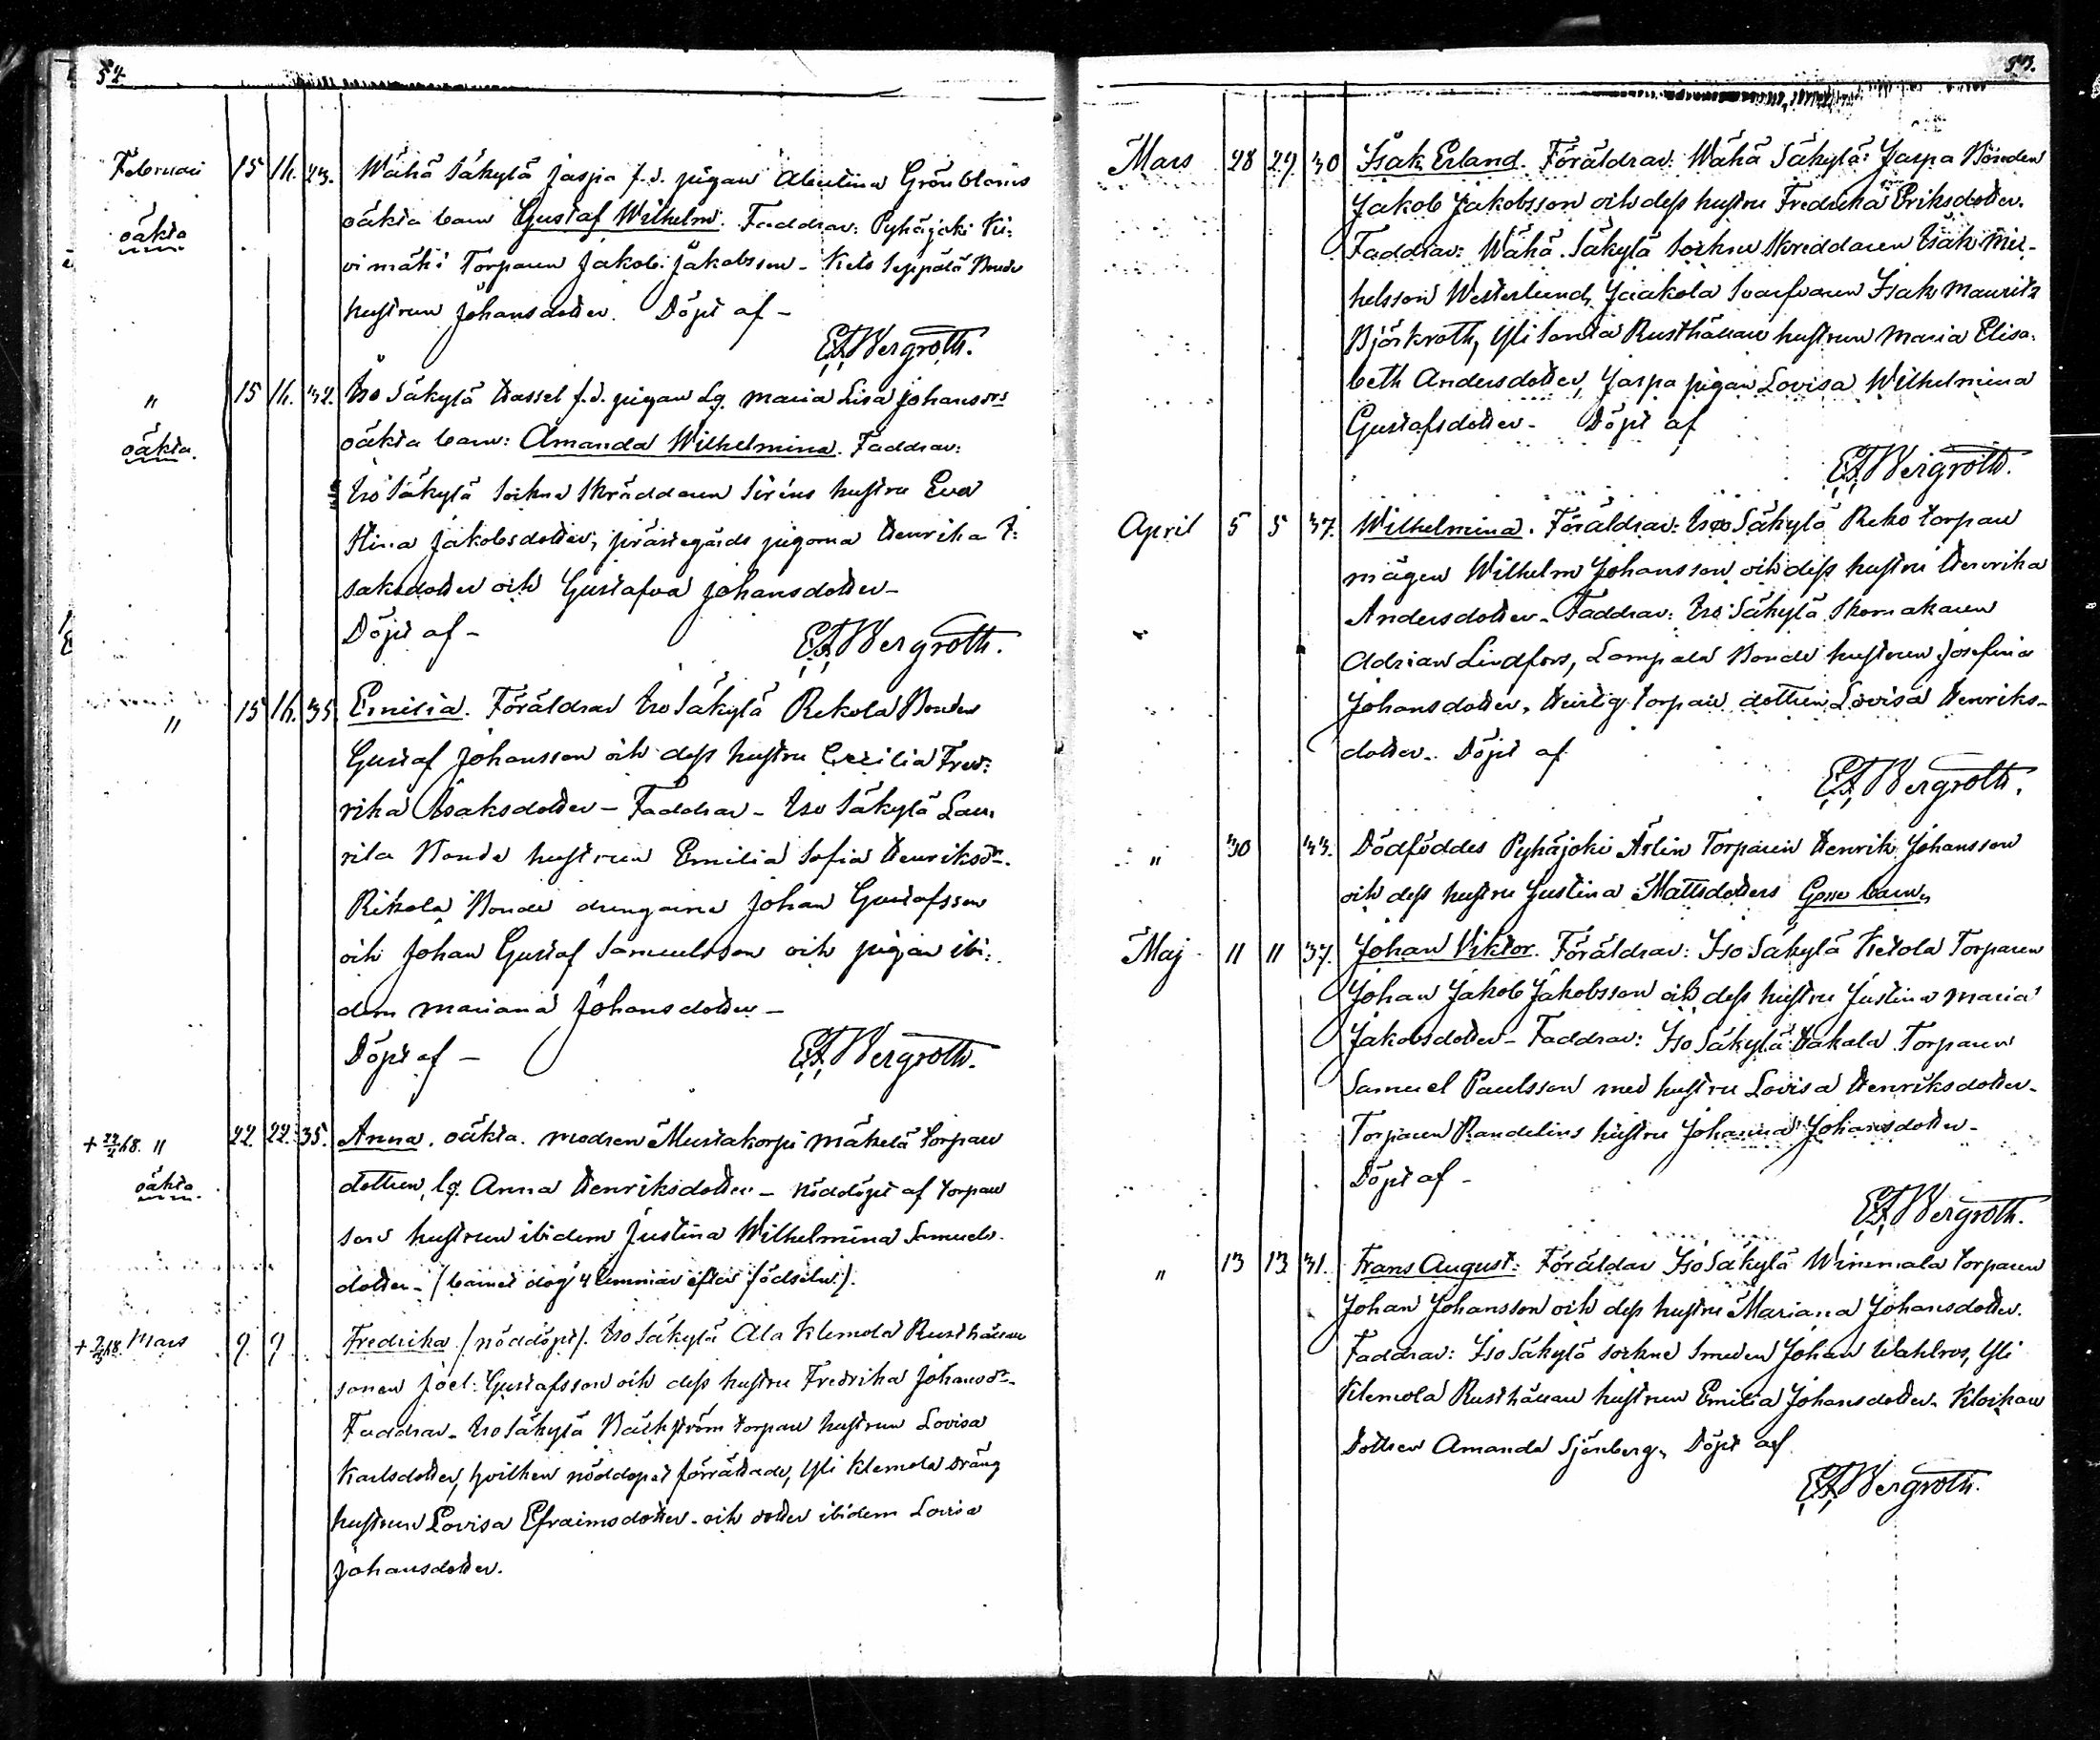 52.
Februari 15 16. 23. Wähä Säkylä Jaspa f.d. pigan Albertina Grönbloms
oäkta oäkta barn Gustaf Wilhelm. Faddrar: Pyhäjoki Ki-
vimäki Torparen Jakob Jakobsson - Keto Seppälä Bonde
hustrun Johansdotter. Döpt af -
E.F. Bergroth.
" 15 16. 32. Iso Säkylä Hassel f.d. pigan Lg. Maria Lisa Johansdrs
oäkta. oäkta barn: Amanda Wilhelmina. Faddrar:
Iso Säkylä Sockne Skräddaren Siréns hustru Eva
Stina Jakobsdotter, prästegårds pigorna Henrika I-
saksdotter och Gustafva Johansdotter -
Döpt af - E.F. Bergroth.
" 15 16. 35 Emilia. Föräldrar Iso Säkylä Rekola Bonden
Gustaf Johansson och dess hustru Cecilia Fred-
rika Isaksdotter - Faddrar - Iso Säkylä Lau-
rila Bonde hustrun Emilia Sofia Henriksdr.
Rekola Bonde drengarne Johan Gustafsson
och Johan Gustaf Samuelsson och pigan ibi-
dem Mariana Johansdotter -
Döpt af - E.F. Bergroth.
+ 22/2 68. " 22 22. 35. Anna. oäkta. modren Mustakorpi Mäkelä torpare
oäkta dottren, lg. Anna Henriksdotter - nöddöpt af torpare
sons hustrun ibidem Justina Wilhelmina Samuels-
dotter - (barnet dog 4 timmar efter födseln).
+ 9/3 68. Mars 9. 9 Fredrika (nöddöpt). Iso Säkylä Ala Klemola Rusthållare
sonen Joel Gustafsson och dess hustru Fredrika Johansdr -
Faddrar - Iso Säkylä Bäckström torpare hustrun Lovisa
Karlsdotter, hvilken nöddopet förrättade, Yli Klemola dräng
hustrun Lovisa Efraimsdotter - och dotter ibidem Lovisa
Johansdotter.
53.
Mars 28 29. 30 Isak Erland. Föräldrar: Wähä Säkylä Jaspa Bonden
Jakob Jakobsson och dess hustru Fredrika Eriksdotter.
Faddrar: Wähä Säkylä Sockne Skreddaren Isak Mic-
helsson Westerlund, Jaakola Svarfvaren Isak Mauritz
Björkroth, Yli Sonta Rusthållare hustrun Maria Elisa-
beth Andersdotter, Jaspa pigan Lovisa Wilhelmina
Gustafsdotter - Döpt af
E.F. Bergroth.
April 5 5 37. Wilhelmina. Föräldrar: Iso Säkylä Reko torpare
mågen Wilhelm Johansson och dess hustru Henrika
Andersdotter - Faddrar: Iso Säkylä Skomakaren
Adrian Lindfors, Lampala Bonde hustrun Josefina
Johansdotter, torpare dottren Lovisa Henriks-
dotter. Döpt af
E.F. Bergroth.
" 30 33. Dödföddes Pyhäjoki Torparen Henrik Johansson
och dess hustru Justina Mattsdotters Gosse barn.
Maj 11 11 37. Johan Viktor. Föräldrar: Iso Säkylä Ketola Torparen
Johan Jakob Jakobsson och dess hustru Justina Maria
Jakobsdotter - Faddrar: Iso Säkylä Hakala Torparen
Samuel Paulsson med hustru Lovisa Henriksdotter -
Torparen Randelins hustru Johanna Johansdotter -
Döpt af -
E.F. Bergroth.
" 13 13 31. Frans August. Föräldrar Iso Säkylä Winnmala torparen
Johan Johansson och dess hustru Mariana Johansdotter.
Faddrar: Iso Säkylä sockne Smeden Johan Wahlros, Yli
Klemola Rusthållare hustrun Emilia Johansdotter - Klockare
Dottren Amanda Sjönberg. Döpt af
E.F. Bergroth.